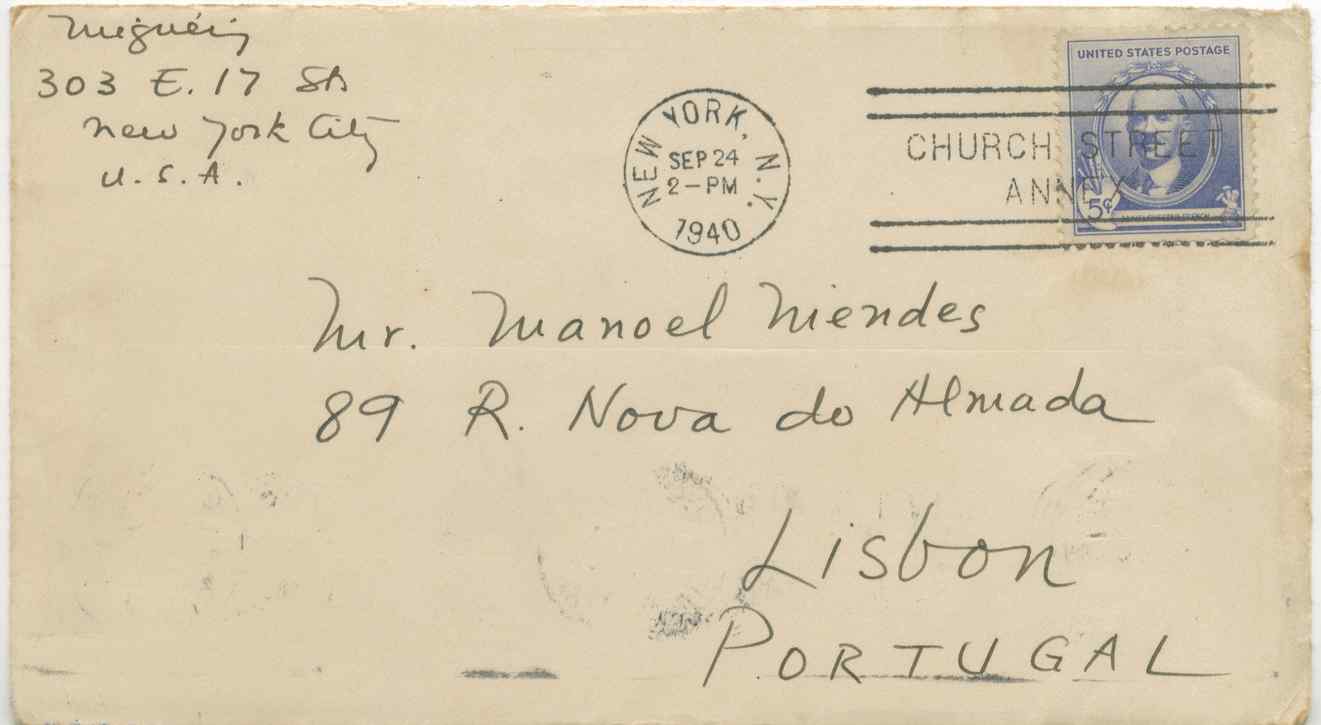 Miguéis
303 E. 17 St
New York City
U.S.A.
NEW YORK, N.Y.
SEP 24
2-PM
1940
CHURCH STREET
ANNEX
UNITED STATES POSTAGE
5¢
Mr. Manoel Mendes
89 R. Nova do Almada
Lisbon
PORTUGAL